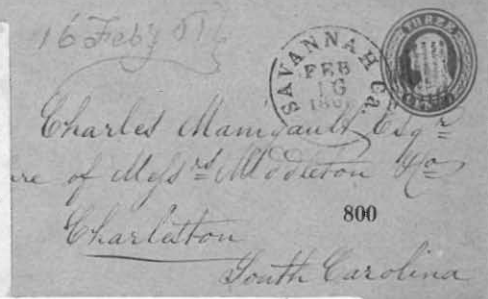 16 Feby
SAVANNAH Ga.
FEB
16
THREE
Charles Manigault Esqr
re of Messrs Middleton & Co
800
Charleston
South Carolina